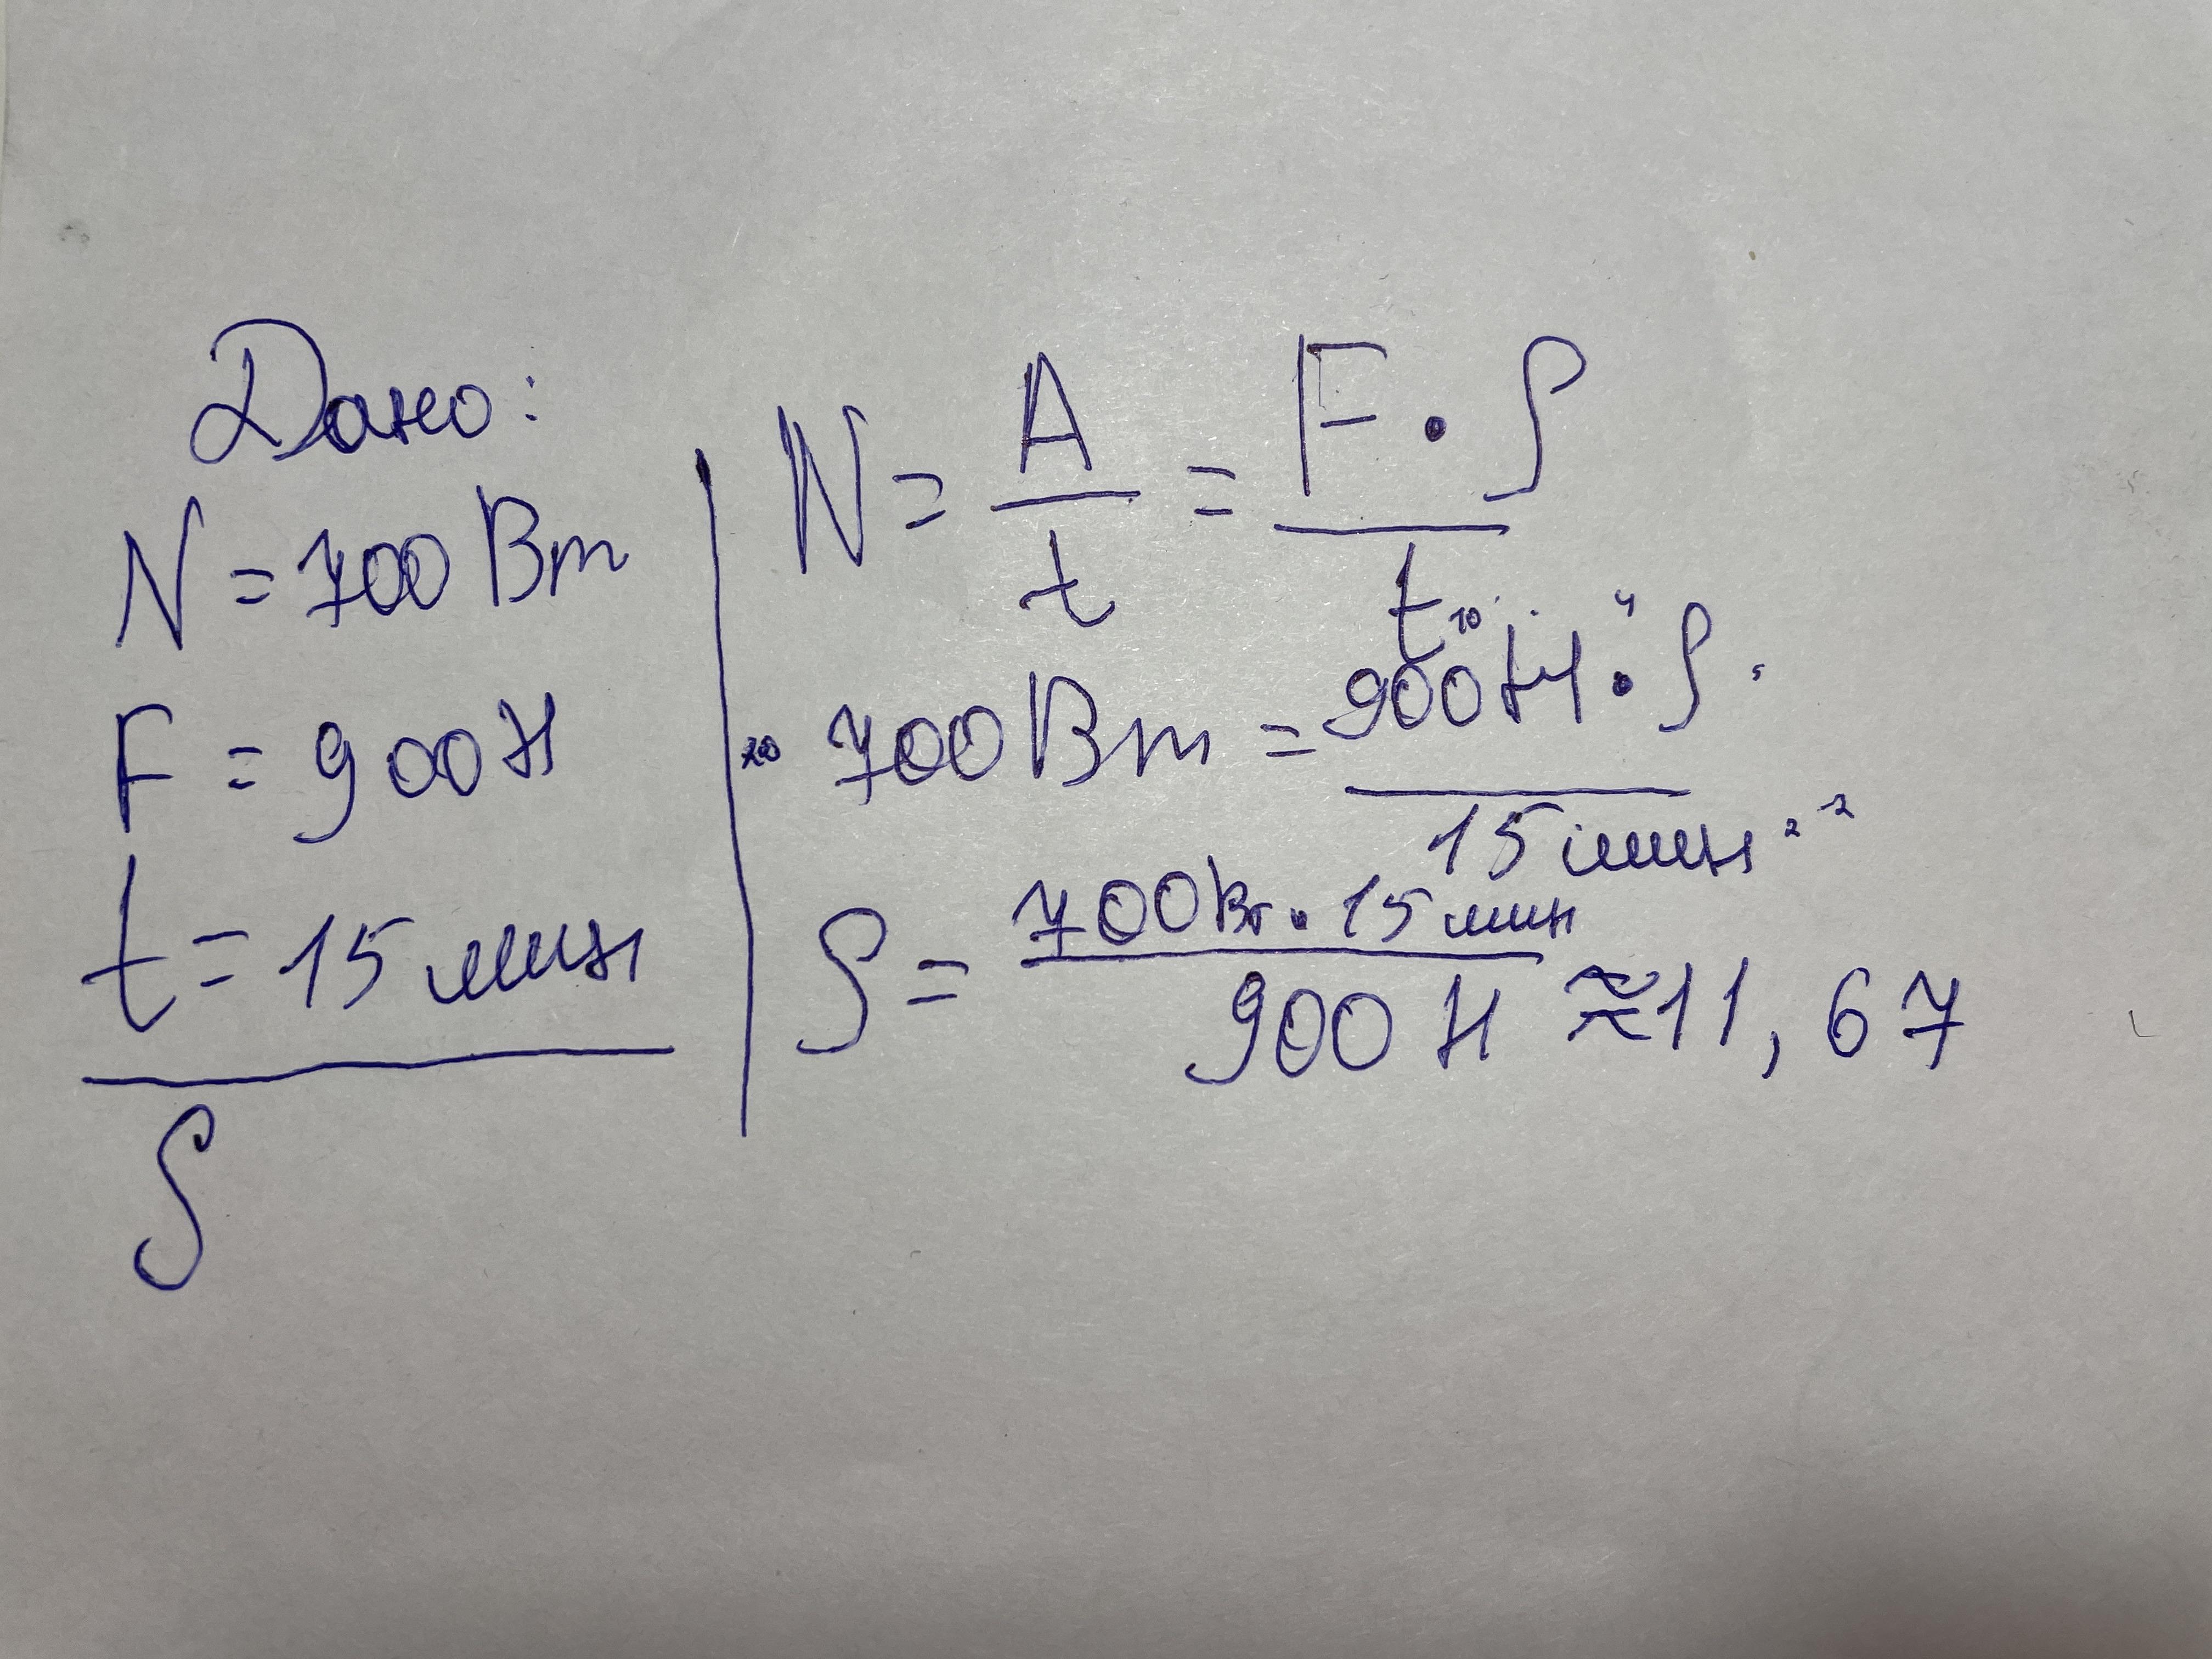 Дано:
N = 700 Вт
F = 900 Н
t = 15 мин
S
N = A/t = F · S/t
700 Вт = 900 Н · S/15 мин
S = 700 Вт · 15 мин/900 Н ≈ 11,67